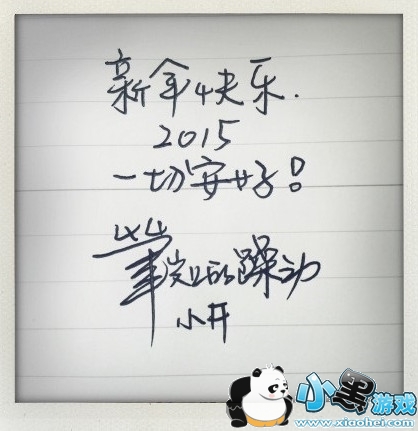 新年快乐.
2015
一切安好!
的躁动
小开
小黑游戏
www.xiaohei.com